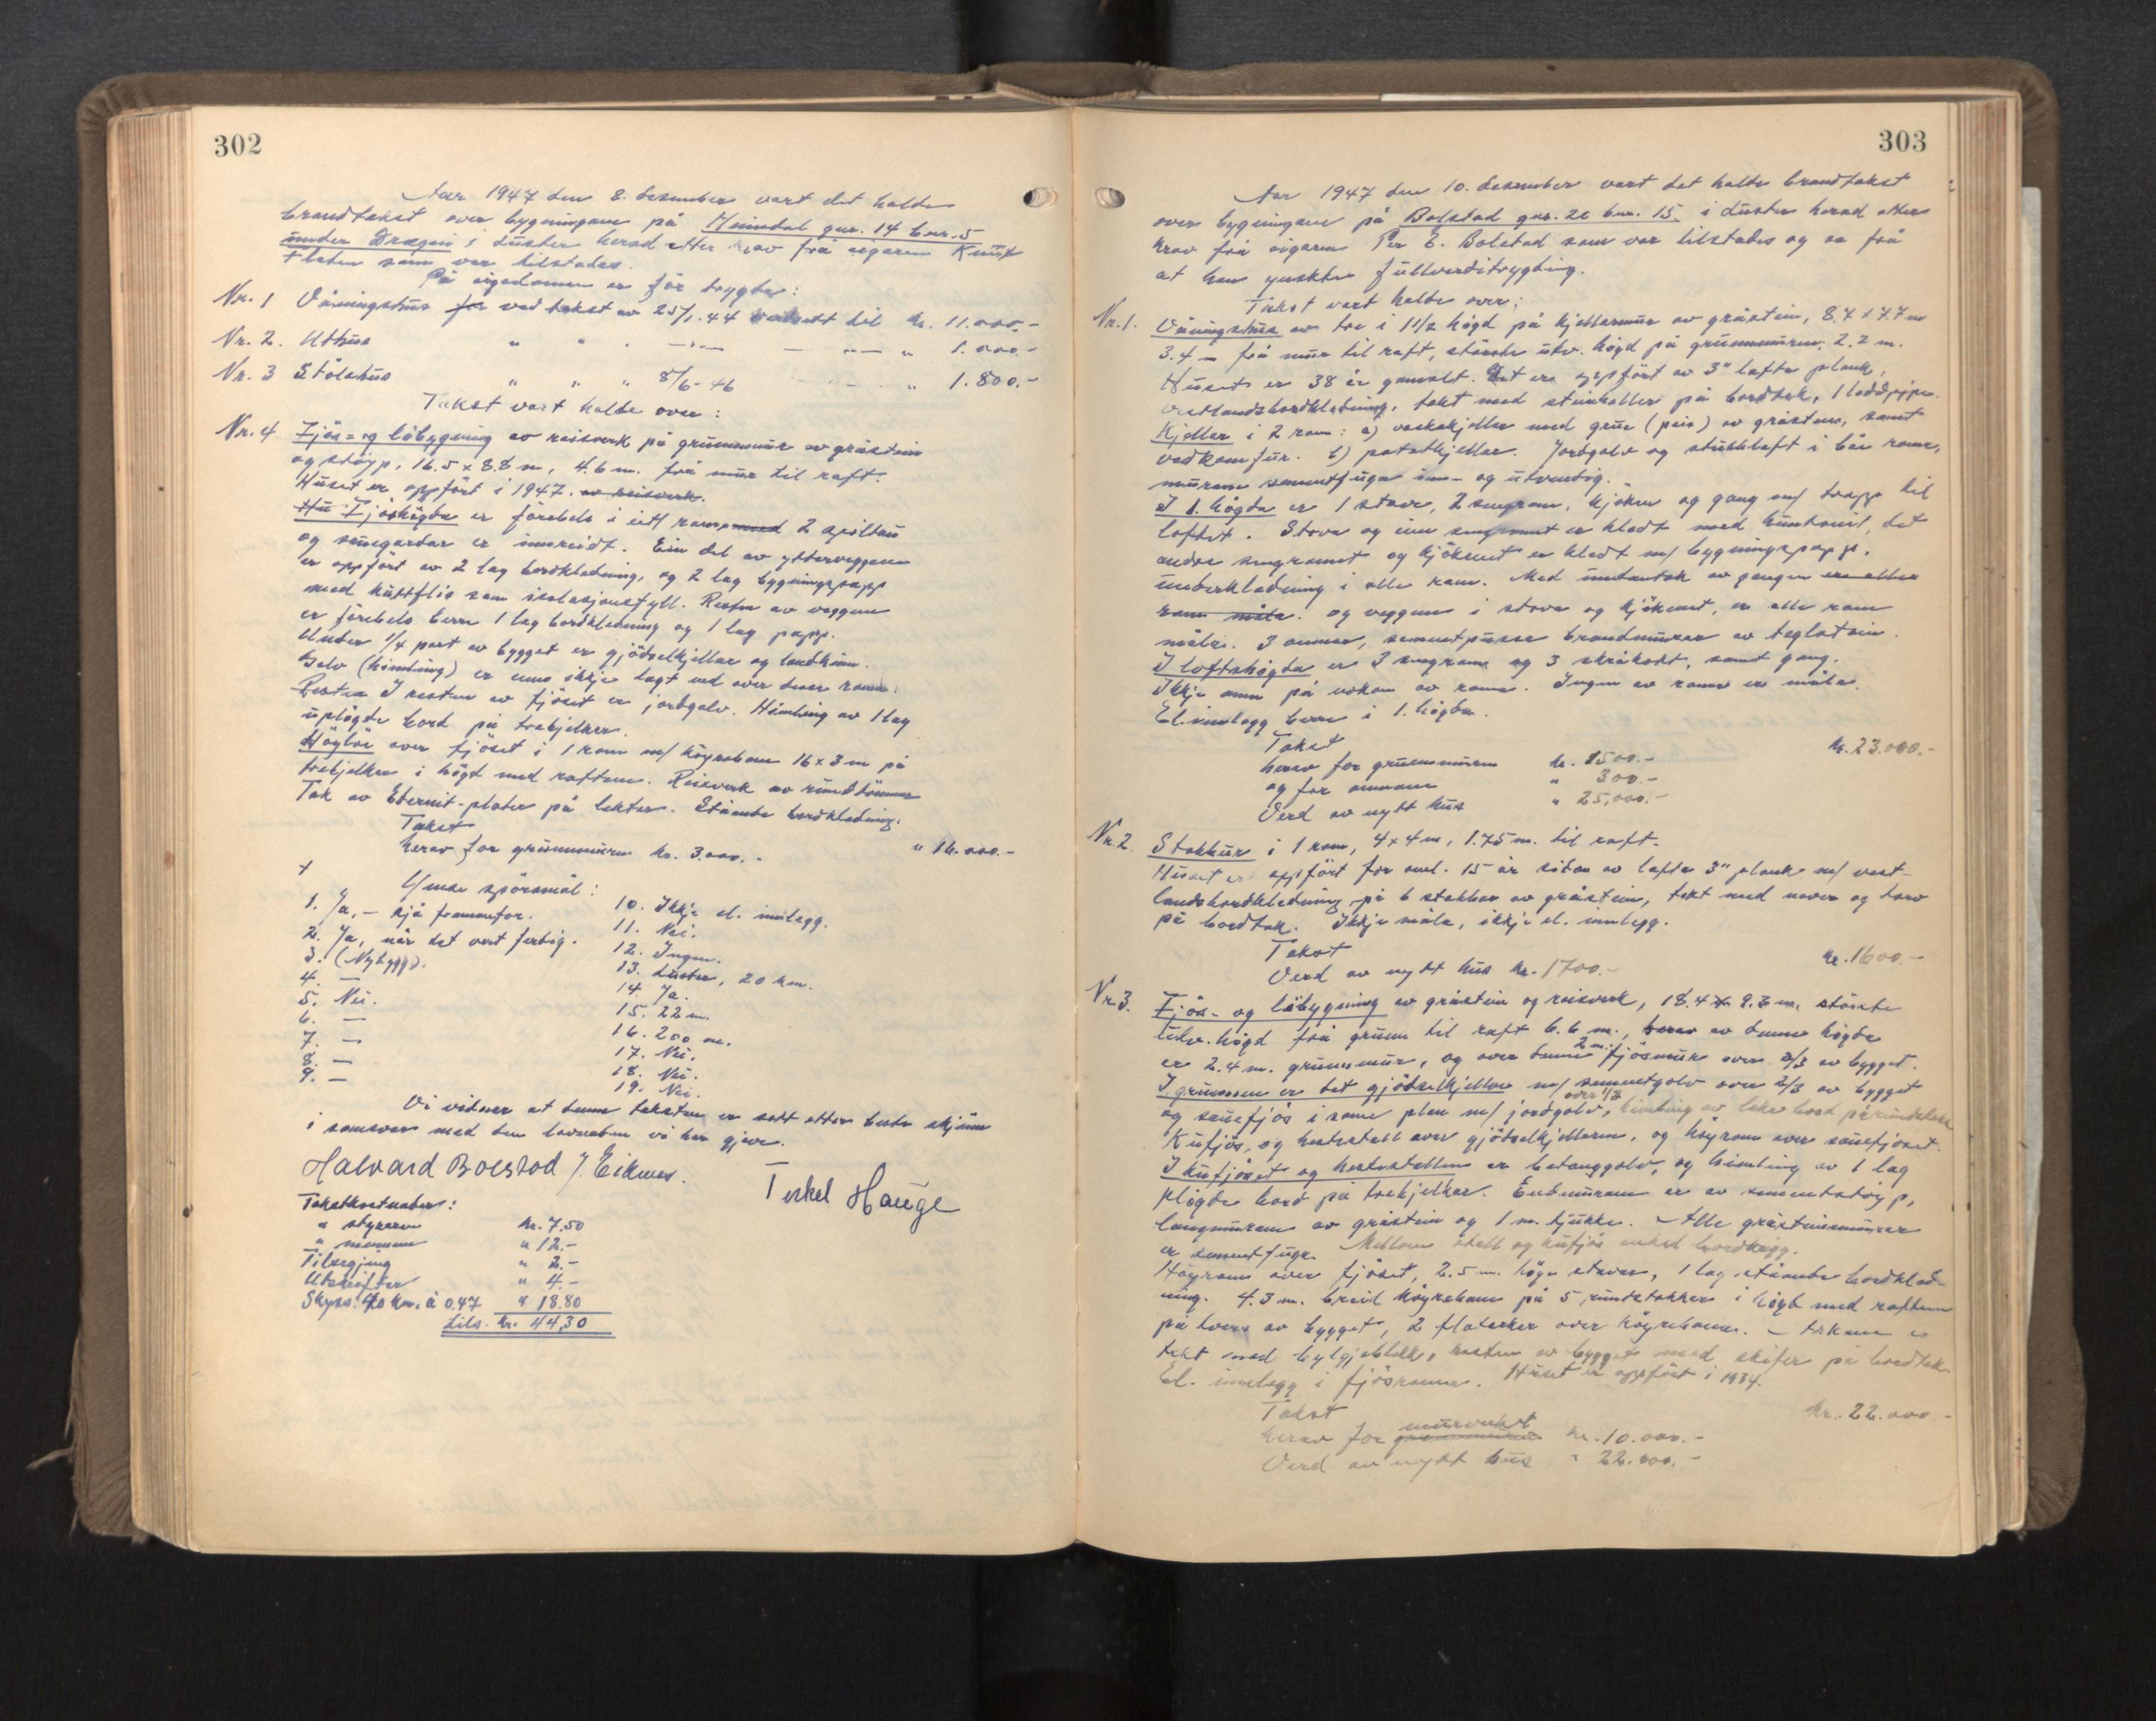 302
Aar 1947 den 8. desember vart det halde
brandtakst over bygningane på Heimdal gnr. 14 bnr. 5
under Drægni i Luster herad etter krav frå eigaren Knut
Flaten som var tilstades.
På eigedomen er før trygda:
Nr. 1 Våningshus for ved takst av 25/1.44 verdsett til kr. 11.000.-
Nr. 2. Uthus " " " —"— — —"— " 1.000.-
Nr. 3 Stølshus " " " 8/6-46 " 1.800.-
Takst vart halde over:
Nr. 4 Fjøs- og løbygning av reisverk på grunnmur av gråstein
og støyp, 16.5 x 8.8 m, 4.6 m. frå mur til raft.
Huset er oppført i 1947. av reisverk.
Hu Fjøshøgda er førebels i eitt rom, med 2 spiltau
og sauegardar er innreidt. Ein del av ytterveggene
er oppført av 2 lag bordkledning, og 2 lag bygningspapp
med kutterflis som isolasjonsfyll. Resten av veggene
er førebels berre 1 lag bordkledning og 1 lag papp.
Under 1/4 part av bygget er gjødselkjellar og landkinn.
Golv (himling) er enno ikkje lagt ned over desse romma.
Resten I resten av fjøset er jordgolv. Himling av 1 lag
upløgde bord på trebjelker.
Høyløe over fjøset i 1 rom m/ høyrebom 16 x 3 m på
trebjelker i høgd med raftane. Reisverk av rundtømmer
Tak av Eternit-plater på lekter. Ståande bordkledning.
Takst " 16.000.-
herav for grunnmuren kr. 3.000.-
+
Ymse spørsmål:
1. Ja, - sjå framanfor.
2. Ja, når det vert ferdig.
3. (Nybygg).
4. —
5. Nei.
6. —
7. —
8. —
9. —
10. Ikkje el. innlegg.
11. Nei.
12. Ingen.
13. Luster, 20 km.
14. Ja.
15. 22 m.
16. 200 m.
17. Nei.
18. Nei.
19. Nei.
Vi vidner at denne taksten er sett etter beste skjønn
i samsvar med den lovnaden vi her gjeve.
Halvard Bolstad J. Eikmes. Terkel Hauge
Takstkostnader:
" styraren kr. 7,50
" mennene " 12.-
Tilsegjing " 2.-
Utskrifter " 4.-
Skyss: 40 km. à 0.47 " 18.80
Tils. kr. 44,30
303
Aar 1947 den 10. desember vart det halde brandtakst
over bygningane på Bolstad gnr. 20 bnr. 15. i Luster herad etter
krav frå eigaren Per E. Bolstad som var tilstades og sa frå
at han ynskte fullverditrygding.
Takst vart halde over:
Nr. 1. Våningshus av tre i 1 1/2 høgd på kjellarmur av gråstein, 8.7 x 7.7 m
3.4 m frå mur til raft, største utv. høgd på grunnmuren, 2.2 m.
Huset er 38 år gamalt. Det er oppført av 3" lafta plank,
vestlandsbordkledning, tekt med steinheller på bordtak, 1 loddpipe.
Kjellar i 2 rom: a) vaskekjellar med grue (peis) av gråstein, samt
vedkomfur. b) potetkjellar. Jordgolv og stubbloft i båe romma,
murane sementfuga inn- og utvendig.
I 1. høgda er 1 stove, 2 sengrom, kjøken og gang m/ trapp til
loftet. Stova og eine sengrommet er kledt med huntonit, det
andre sengromet og kjøkenet er kledt m/ bygningspapp.
underkledning i alle rom. Med undantak av gangen er alle
rom måla. og veggene i stova og kjøkenet, er alle rom
måla. 3 omnar, sementpussa brandmurar av teglstein.
I loftshøgda er 3 sengrom og 3 skråkott, samt gang.
Ikkje omn på nokon av romma. Ingen av romma er måla.
El. innlegg berre i 1. høgda.
Takst kr. 23.000.-
herav for grunnmuren kr. 1500.-
og for omnane " 300.-
Verd av nytt hus " 25.000.-
Nr. 2. Stabbur i 1 rom, 4 x 4 m, 1.75 m. til raft.
Huset er oppført for oml. 15 år sidan av lafta 3" plank m/ vest-
landsbordkledning på 6 stabbar av gråstein, tekt med never og torv
på bordtak. Ikkje måla, ikkje el. innlegg.
Takst kr. 1600.-
Verd av nytt hus kr. 1700.-
Nr. 3. Fjøs- og løbygning av gråstein og reisverk, 18.4 x 9.3 m, største
utv. høgd frå grunn til raft 6.6 m., herav av denne høgda
er 2.4 m. grunnmur, og over denne 2 m. fjøsmur over 2/3 av bygget.
I grunnen er det gjødselkjellar m/ sementgolv over 2/3 av bygget
og sauefjøs i same plan m/ jordgolv, over 1/3 himling av lske bord på rundstokk
Kufjøs, og hestestall over gjødselkjellaren, og høyrom over sauefjøset.
I kufjøset og hestestallen er betonggolv, og himling av 1 lag
pløgde bord på trebjelkar. Endemurane er av sementstøyp,
langmurane av gråstein og 1 m. tjukke. Alle gråsteinsmurar
er sementfuga. Mellom stall og kufjøs enkel bordvegg.
Høyrom over fjøset, 2.5 m. høge stavar, 1 lag ståande bordkled-
ning. 4.3 m. breid høyrebom på 5 rundstokker i høgd med raftane
på tvers av bygget, 2 flatarker over høyrebomen. - Arkane er
tekt med bylgjeblekk, resten av bygget med skifer på bordtak.
El. innlegg i fjøsromma. Huset er oppført i 1934.
Takst kr. 22.000.-
herav for grunnmuren murverket kr. 10.000.-
Verd av nytt hus " 22.000.-